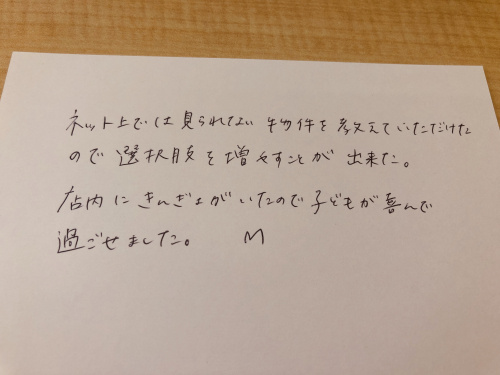 ネット上では見られない物件を教えていただけた
ので選択肢を増やすことが出来た。
店内にきんぎょがいたので子どもが喜んで
過ごせました。 M